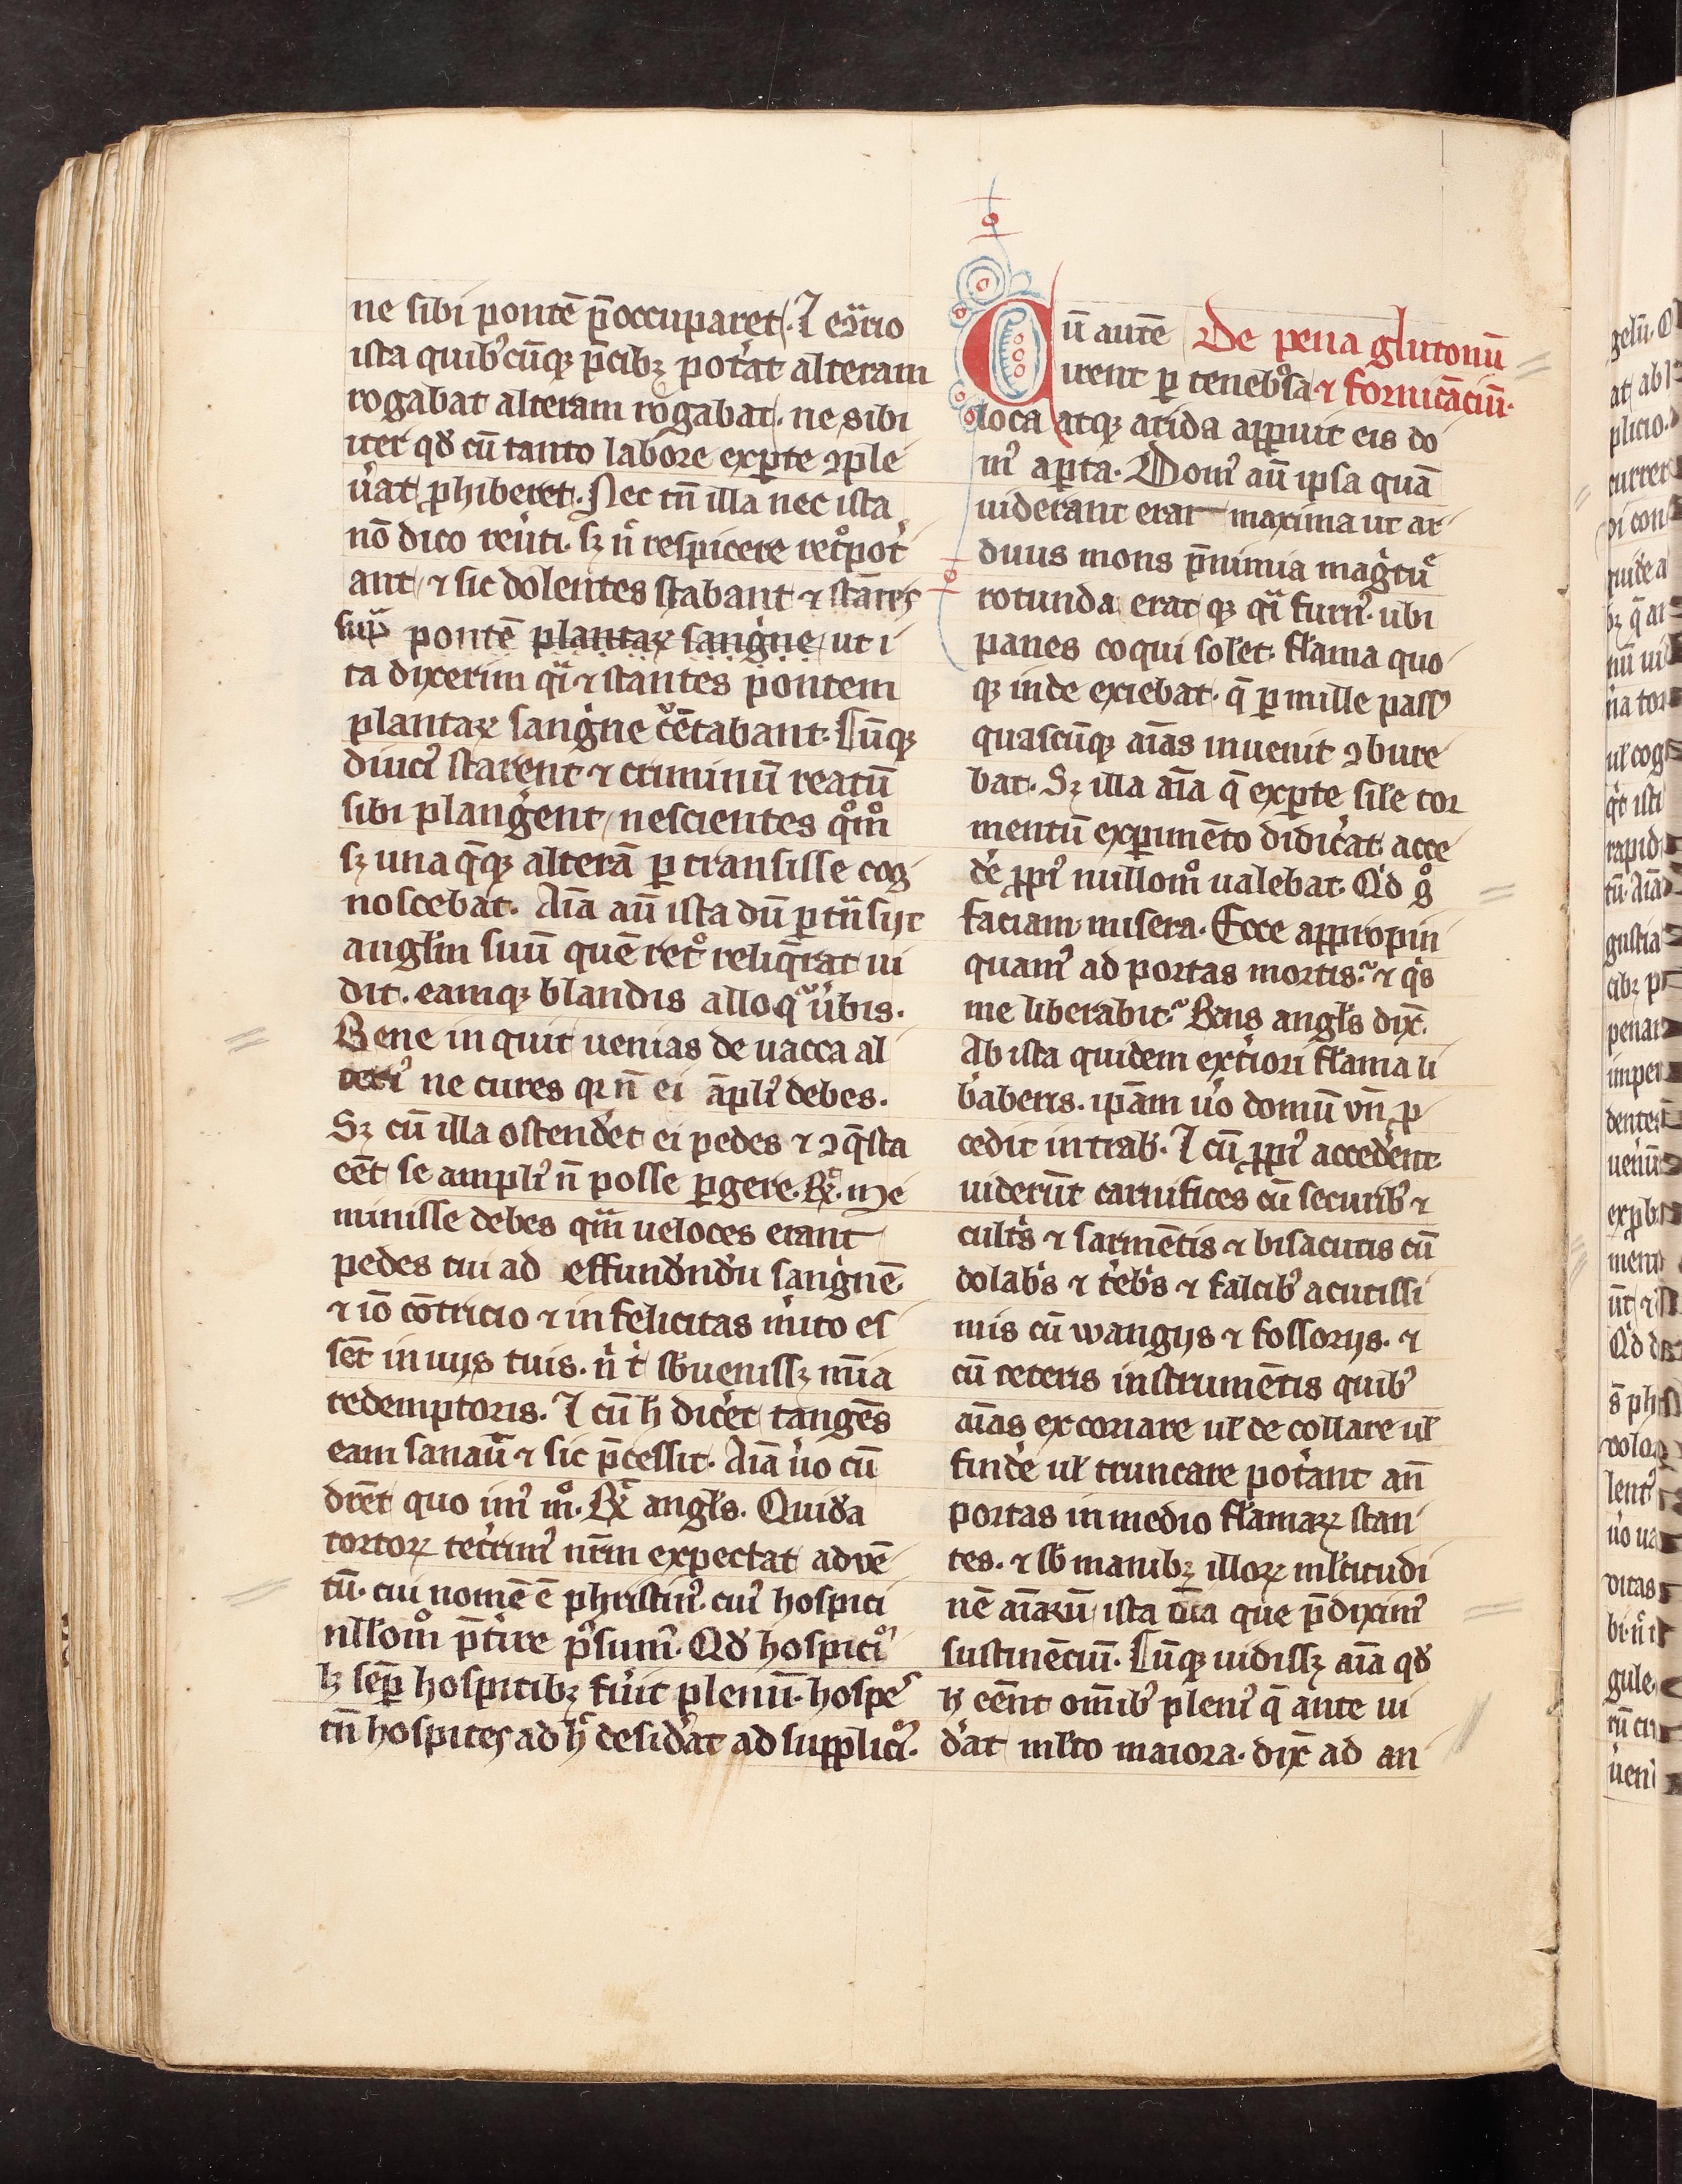 ne sibi pontē p̄occuparet. I ecͣrio
ista quibꝰcūqꝫ p̄cibꝫ potͥat alteram
rogabat alteram rogabat. ne sibi
iter qđ cū tanto labore exꝑte ꝯple
uͥat ꝓhiberet. Nec tn̄ illa nec ista
nō dico reuͥti. sꝫ nͨ respicere retͦ potͥ
ant ⁊ sic dolentes stabant ⁊ stātes
suꝑ pontē plantaꝝ sangͥne ut i
ta dixerim qͣi ⁊ stantes pontem
plantaꝝ sangͥne cͥētabant. Cūqꝫ
diuciꝰ starent ⁊ criminū reatū
sibi plangͥent nescientes qͦmͦ
sꝫ una q̄qꝫ alterā ꝑ transisse cog
noscebat. Aīa aū ista dū ꝑtͣnsijt
angl̄m suū quē retͦ reliq̄rat ui
dit. eamqꝫ blandis alloqͥͬ uͥbis.
Bene inquit uenias de uacca al
teriꝰ ne cures qr n̄ ei āpliꝰ debes.
Sꝫ cū illa ostendͥet ei pedes ⁊ ꝯq̄sta
eēt se ampliꝰ n̄ posse ꝑgere. Rͣx. me
minisse debes qͣm ueloces erant
pedes tui ad effundͥndͥu sangͥnē
⁊ iō cōtricio ⁊ infelicitas mͥito es
sēt in uijs tuis. nͥ tͥ sƀuenissꝫ mīa
redemptoris. I cū h̄ dicͥet tangēs
eam sanaūͭ ⁊ sic p̄cessit. Aīa uͦo cū
dr̄et quo imꝰ mͦ. Rͣx angl̄s. Quidͣa
tortoꝝ tecͥrimꝰ nr̄m expectat advē
tū. cui nomē ē phristinꝰ cuiꝰ hospici
nll̄omͦ p̄tͥire pͦsumꝰ. Qđ hospiciͦꝰ
lꝫ semꝑ hospitibꝫ fuͥit plenū. hospeͬ
tn̄ hospites ad hͨ desidͥat ad suppliciͦꝰ.
De pena glutonū
⁊ fornicāciū.
Cū autē
irent ꝑ tenebͦsa
loca atqꝫ arida apꝑuit eis do
mꝰ aꝑta. Domꝰ aū ipsa quā
uiderant erat maxima ut ar
duus mons p̄nimia magͥtuͤ
rotunda erat qꝫ qͣi furnꝰ. ubi
panes coqui solet. flama quo
qꝫ inde exiebat. q̄ ꝑ mille passꝰ
quascūqꝫ aīas inuenit ꝯbure
bat. Sꝫ illa aīa q̄ exꝑte sil̄e tor
mentū exꝑimēto didicͥat. acce
dͥe ꝓpiꝰ nullomͦ ualebat. Qͥd gͦ
faciam misera. Ecce appropin
quamꝰ ad portas mortis. ⁊ qͥs
me liberabit. Rn̄s angl̄s dix̄.
Ab ista quidem extͥiori flama li
bͥaberis. ipām uͦo domū vn̄ ꝓ
cedit intrab. I cū ꝓpiꝰ accedͥent
uiderūt carnifices cū securibꝰ ⁊
cultͥs ⁊ sarmētis ⁊ bisacutis cū
dolabͥs ⁊ tͥebͥs ⁊ falcibꝰ acutissi
mis cū wangijs ⁊ fossorijs. ⁊
cū ceteris instrumētis quibꝰ
aīas excoriare ul̄ de collare ul̄
findͥe ul̄ truncare potͥant an̄
portas in medio flamaꝝ stan
tes. ⁊ sƀ manibꝫ illoꝝ ml̄titudi
nē aīarū ista oīa que p̄diximꝰ
sustinēciū. Cūqꝫ uidissꝫ aīa qđ
h̄ eēnt om̄ibꝰ penisꝰ q̄ ante ui
dͥat ml̄to maiora. dix̄ ad an